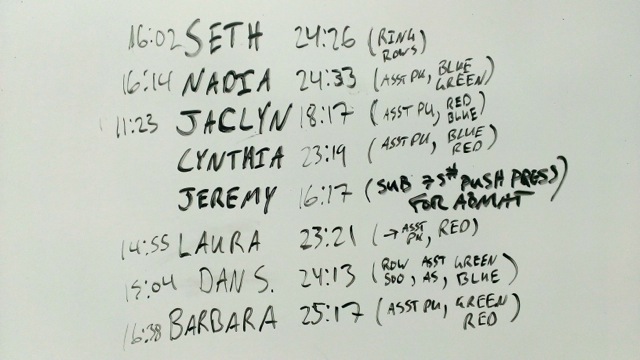 16:02 SETH 24:26 (RING ROWS)
16:14 NADIA 24:33 (ASST PU, BLUE GREEN)
11:23 JACLYN 18:17 (ASST PU, RED BLUE)
CYNTHIA 23:19 (ASST PU, BLUE RED)
JEREMY 16:17 (SUB 75# PUSH PRESS FOR ABMAT)
14:55 LAURA 23:21 (→ ASST PU, RED)
15:04 DAN S. 24:13 (ROW 500, ASST AS, GREEN BLUE)
16:38 BARBARA 25:17 (ASST PU, GREEN RED)